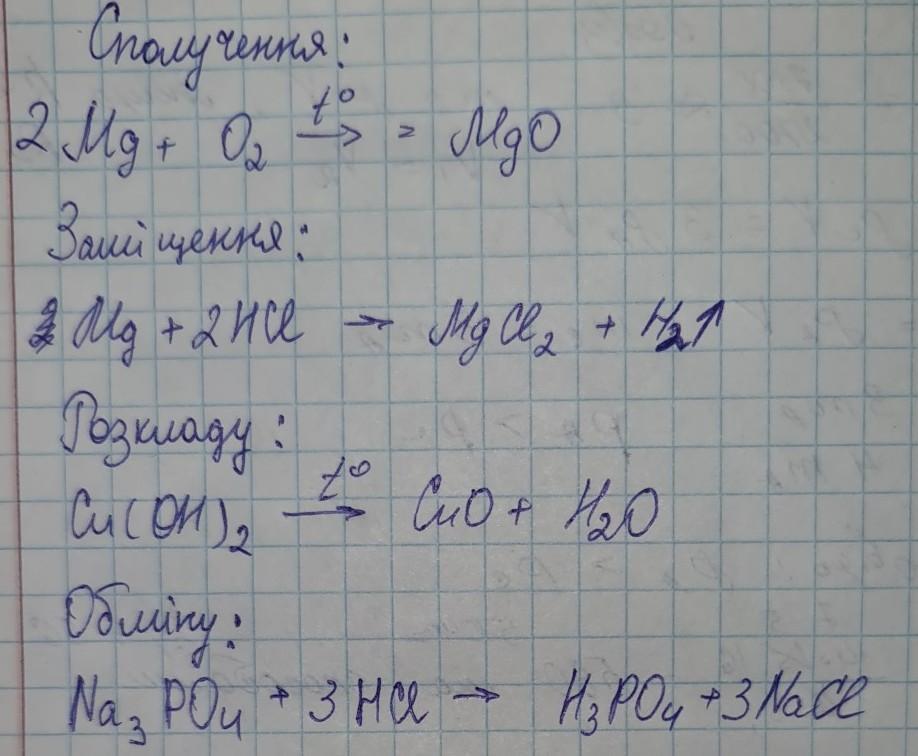 Сполучення:
2 Mg + O₂ t° → = MgO
Заміщення:
Mg + 2HCl → MgCl₂ + H₂↑
Розкладу:
Cu(OH)₂ t° → CuO + H₂O
Обміну:
Na₃PO₄ + 3HCl → H₃PO₄ + 3NaCl